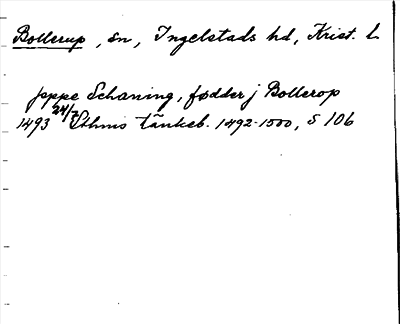 Bollerup, sn, Ingelstads hd, Krist. L
Jeppe Schaning, fødder j Bollerop
1493 24/7 Sthms tänkeb. 1492-1500, S 106